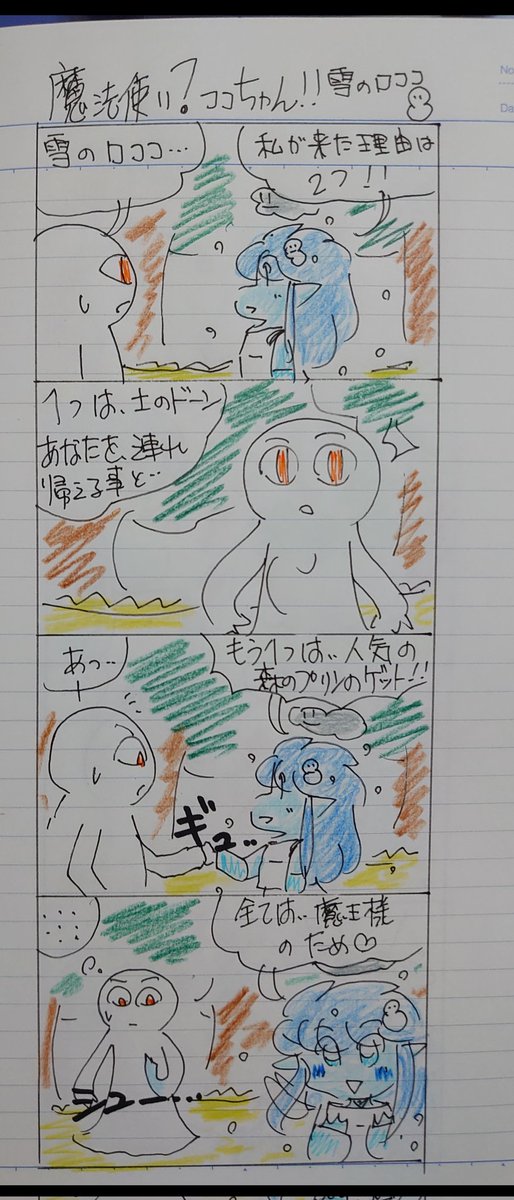 魔法使い?ココちゃん!!雪のロココ
No
Da
雪のロココ…
私が来た理由は
2つ!!
1つは、土のドーン
あなたを、連れ
帰える事と…
あっ…
もう1つは…人気の
森のプリンのゲット!!
ギュ…
全ては…魔王様
のため♡
シュー…